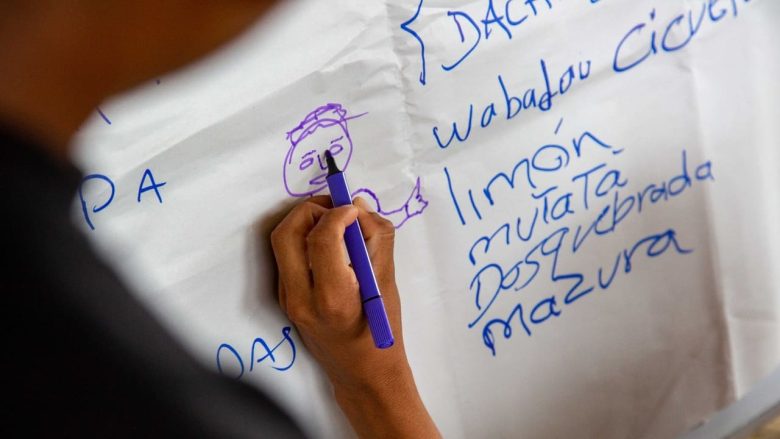 DACH
wabadau Cicue
PA
limón
mutata
Dosquebrada
mazura
DAS